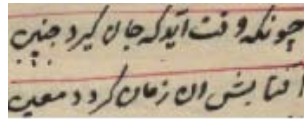 چونکه وقت آید که جان گیرد جنین
آفتابش آن زمان گردد معین